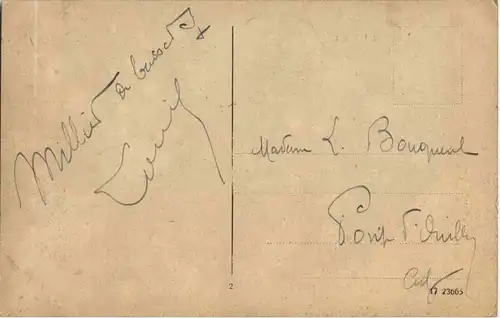 Millier de baisers
Madame L. Bouquerel
Pont d'Ouilly
2
17 23665